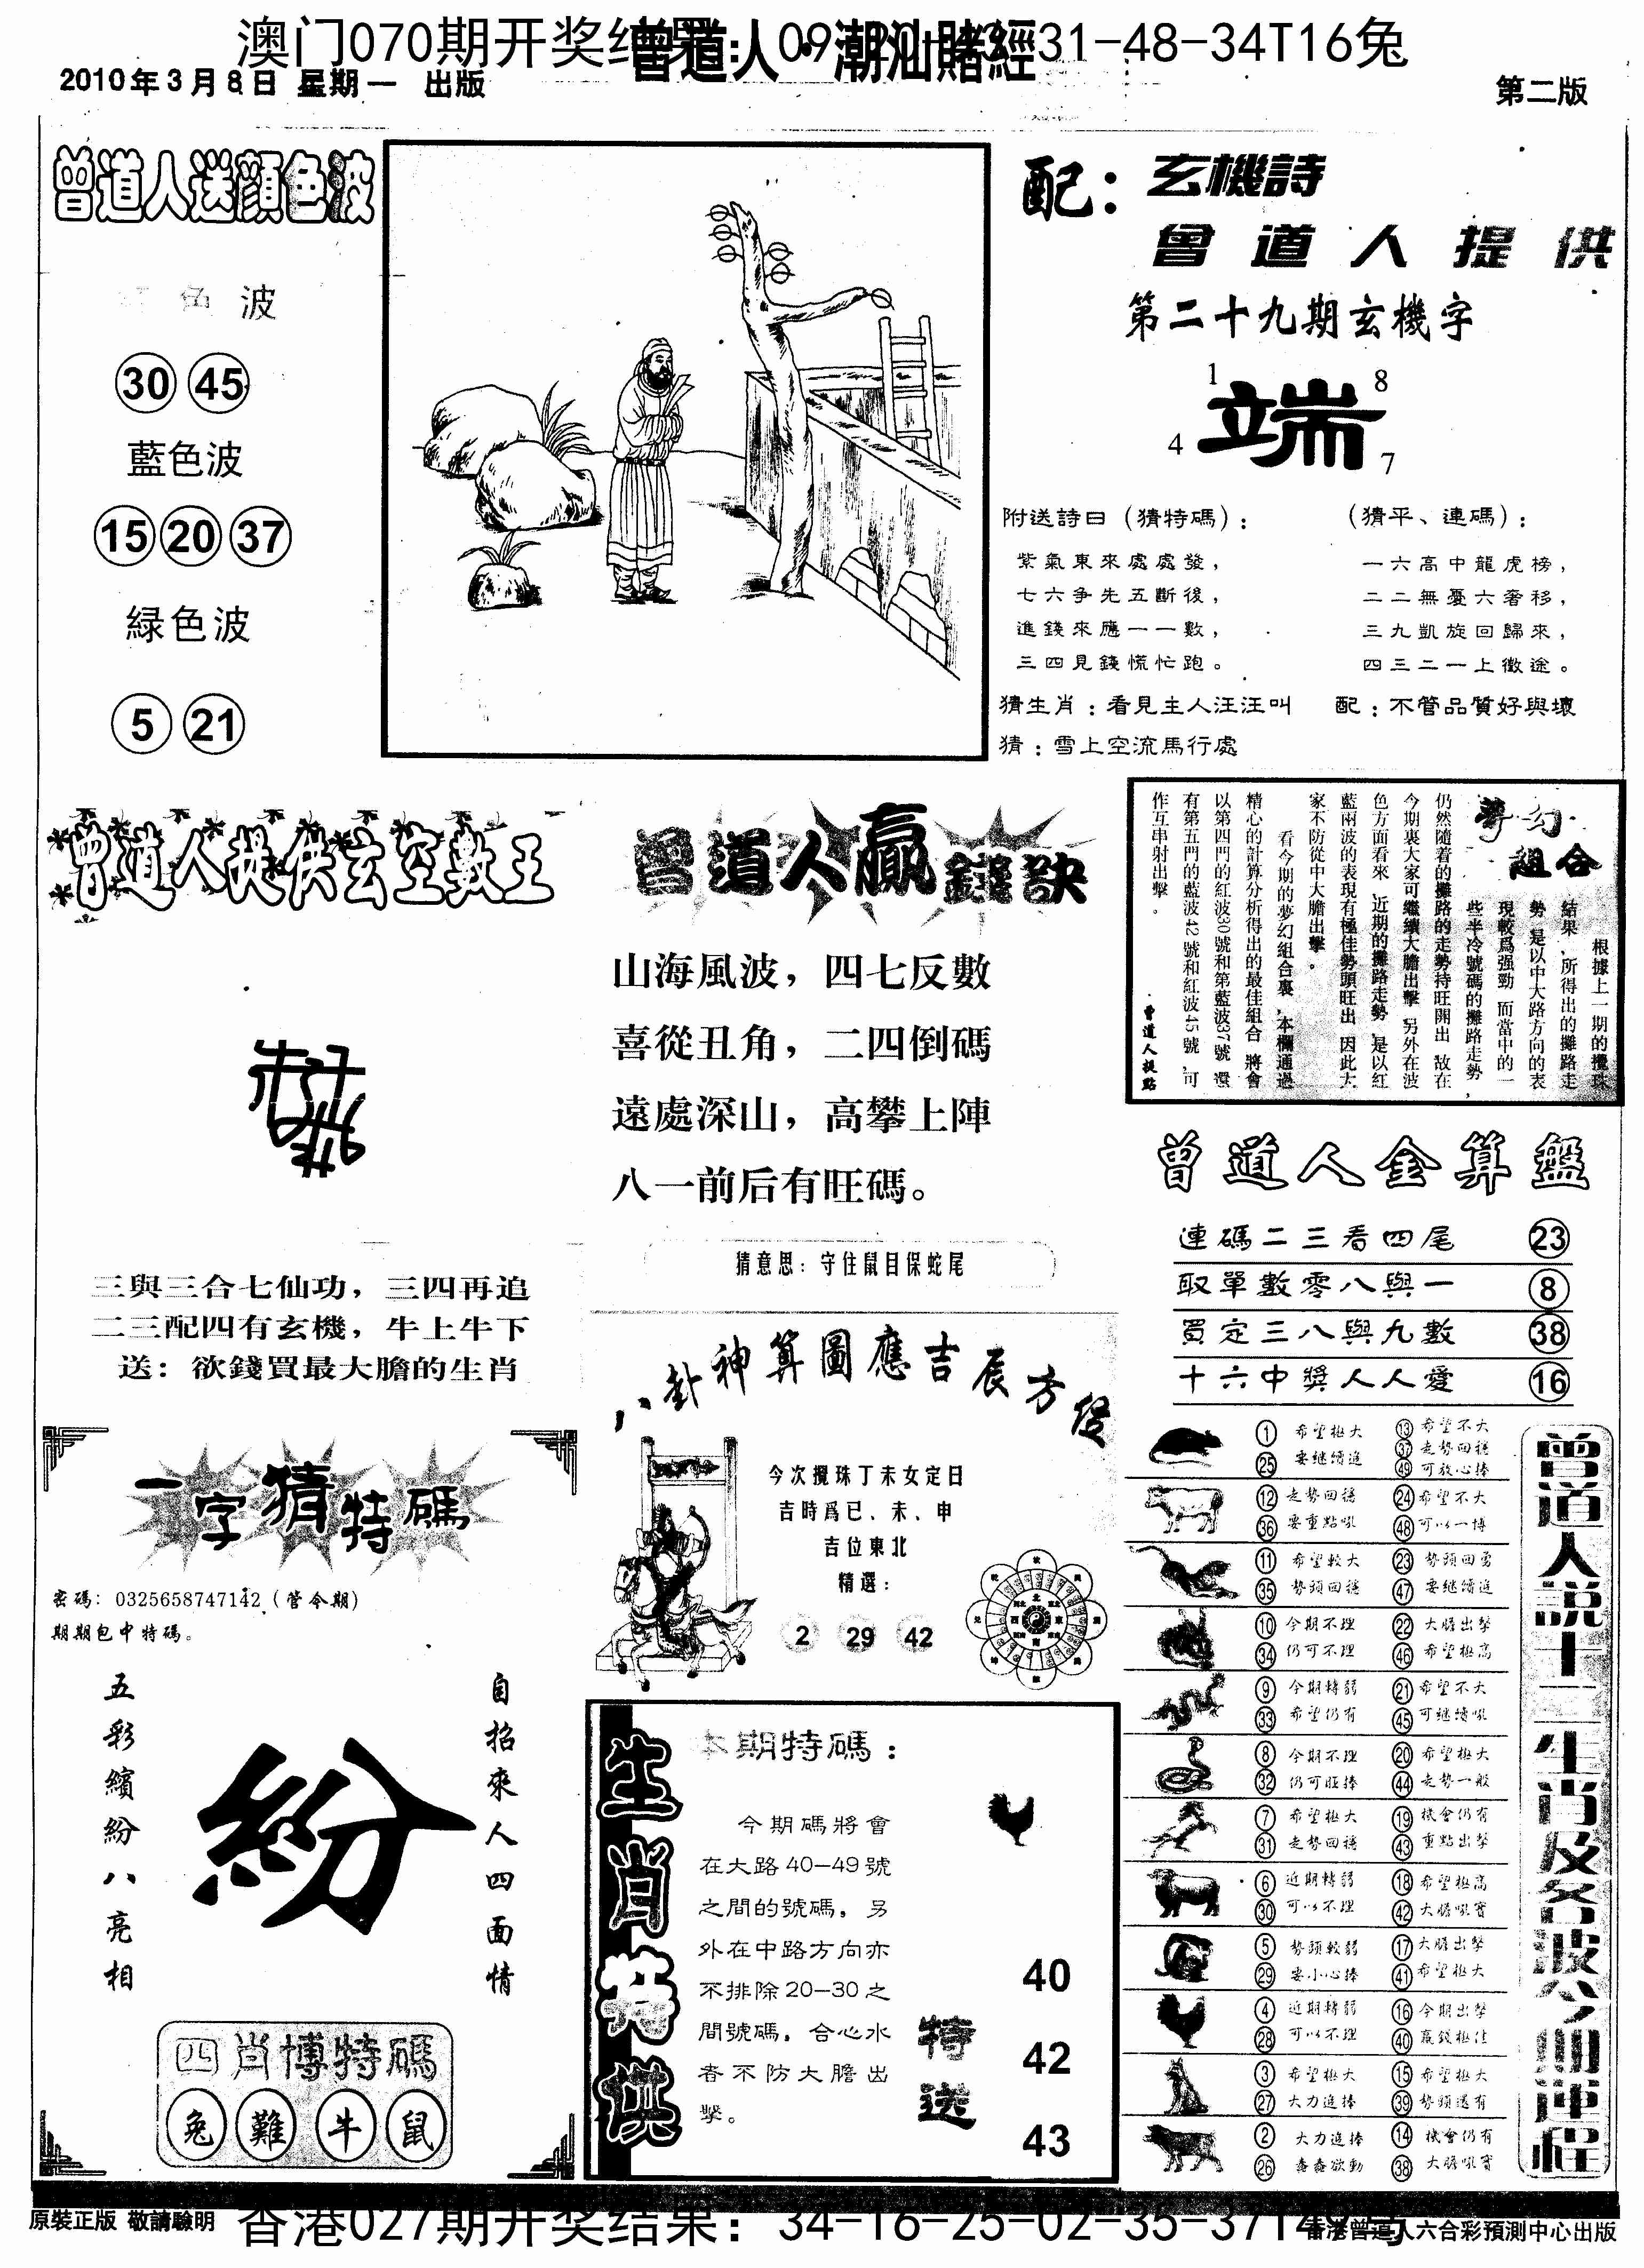 澳门070期开奖结果：09
31-48-34T16兔
曾道人·潮汕賭經
2010年3月8日 星期一 出版
第二版
曾道人送顔色波
色波
30 45
藍色波
15 20 37
緑色波
5 21
配：玄機詩
曾道人提供
第二十九期玄機字
1 8
端
4 7
附送詩曰（猜特碼）：
紫氣東來處處發，
七六争先五斷後，
進錢來應一一數，
三四見錢慌忙跑。
（猜平、連碼）：
一六高中龍虎榜，
二二無憂六奢移，
三九凱旋回歸來，
四三二一上徵途。
猜生肖：看見主人汪汪叫
配：不管品質好與壞
猜：雪上空流馬行處
曾道人提供玄空數王
三與三合七仙功，三四再追
二三配四有玄機，牛上牛下
送：欲錢買最大膽的生肖
曾道人贏錢訣
山海風波，四七反數
喜從丑角，二四倒碼
遠處深山，高攀上陣
八一前后有旺碼。
猜意思：守住鼠目保蛇尾
夢幻組合
根據上一期的攪珠
結果，所得出的攤路走
勢，是以中大路方向的表
現較爲强勁，而當中的一
些半冷號碼的攤路走勢，
仍然隨着的攤路的走勢持旺開出，故在
今期裏大家可繼續大膽出擊，另外在波
色方面看來，近期的攤路走勢，是以紅
藍兩波的表現有極佳勢頭旺出，因此大
家不防從中大膽出擊。
看今期的夢幻組合裏，本欄通過
精心的計算分析得出的最佳組合，將會
以第四門的紅波30號和第藍波37號，還
有第五門的藍波42號和紅波45號，可
作互串射出擊。
·曾道人提點
曾道人金算盤
連碼二三看四尾 23
取單數零八與一 8
買定三八與九數 38
十六中獎人人愛 16
八卦神算圖應吉辰方位
今次攪珠丁未女定日
吉時爲已、未、申
吉位東北
精選：
2 29 42
一字猜特碼
密碼：0325658747142（管今期）
期期包中特碼。
五彩繽紛八亮相
紛
自招來人四面情
四肖博特碼
兔 難 牛 鼠
生肖特供
本期特碼：
今期碼將會
在大路40—49號
之間的號碼，另
外在中路方向亦
不排除20—30之
間號碼，合心水
者不防大膽出
擊。
特送
40
42
43
曾道人説十二生肖及各波今期運程
1 希望極大 13 希望不大
25 要继續追 37 走勢回穩
49 可放心捧
12 走勢回穩 24 希望不大
36 要重點吼 48 可以一博
11 希望較大 23 勢頭回勇
35 勢頭回穩 47 要继續追
10 今期不理 22 大膽出擊
34 仍可不理 46 希望極高
9 今期轉弱 21 希望不大
33 希望仍有 45 可继續吼
8 今期不理 20 希望極大
32 仍可旺捧 44 走勢一般
7 希望極大 19 機會仍有
31 走勢回穩 43 重點出擊
6 近期轉弱 18 希望極高
30 可以不理 42 大膽吼實
5 勢頭較弱 17 大膽出擊
29 要小心捧 41 希望極大
4 近期轉弱 16 今期出擊
28 可以不理 40 贏錢極佳
3 希望極大 15 希望極大
27 大力追捧 39 勢頭還有
2 大力追捧 14 機會仍有
26 蠢蠢欲動 38 大膽吼實
原裝正版 敬請驗明
香港027期开奖结果：34-16-25-02-35-37T49
香港曾道人六合彩預測中心出版